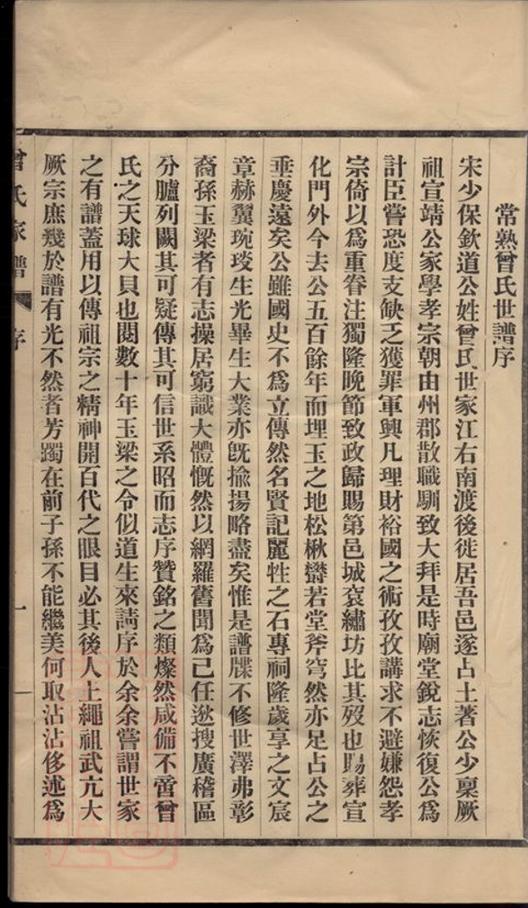 常熟曾氏世譜序
宋少保欽道公姓曾氏世家江右南渡後徙居吾邑遂占土著公少稟厥
祖宣靖公家學孝宗朝由州郡散職馴致大拜是時廟堂銳志恢復公為
計臣嘗恐度支缺乏獲罪軍興凡理財裕國之術孜孜講求不避嫌怨孝
宗倚以為重眷注獨隆晚節致政歸賜第邑城袞繡坊比其歿也賜葬宣
化門外今去公五百餘年而埋玉之地松楸鬱若堂斧穹然亦足占公之
垂慶遠矣公雖國史不為立傳然名賢記麗牲之石專祠隆歲享之文宸
章赫翼琬琰生光畢生大業亦旣揄揚略盡矣惟是譜牒不修世澤弗彰
裔孫玉梁者有志操居窮識大體慨然以網羅舊聞為己任遂搜廣稽區
分臚列闕其可疑傳其可信世系昭而志序贊銘之類燦然咸備不啻曾
氏之天球大貝也閱數十年玉梁之令似道生來請序於余余嘗謂世家
之有譜蓋用以傳祖宗之精神開百代之眼目必其後人上繩祖武亢大
厥宗庶幾於譜有光不然者芳躅在前子孫不能繼美何取沾沾侈述為
曾氏家譜 序 一